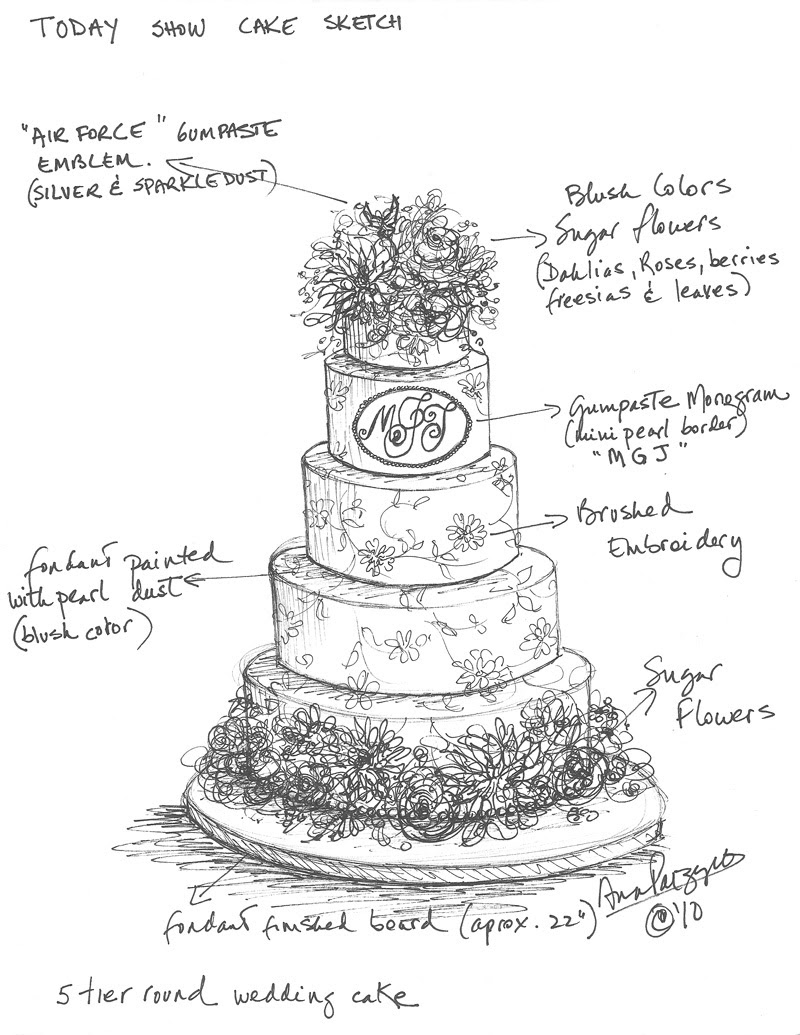 TODAY SHOW CAKE SKETCH
"AIR FORCE" GUMPASTE
EMBLEM.
(SILVER & SPARKLEDUST)
Blush Colors
Sugar flowers
(Dahlias, Roses, berries
freesias & leaves)
MGJ
Gumpaste Monogram
(mini pearl border)
"MGJ"
Brushed
Embroidery
fondant painted
with pearl dust
(blush color)
Sugar
Flowers
fondant finished board (aprox. 22")
Ana Parzych
© '10
5 tier round wedding cake